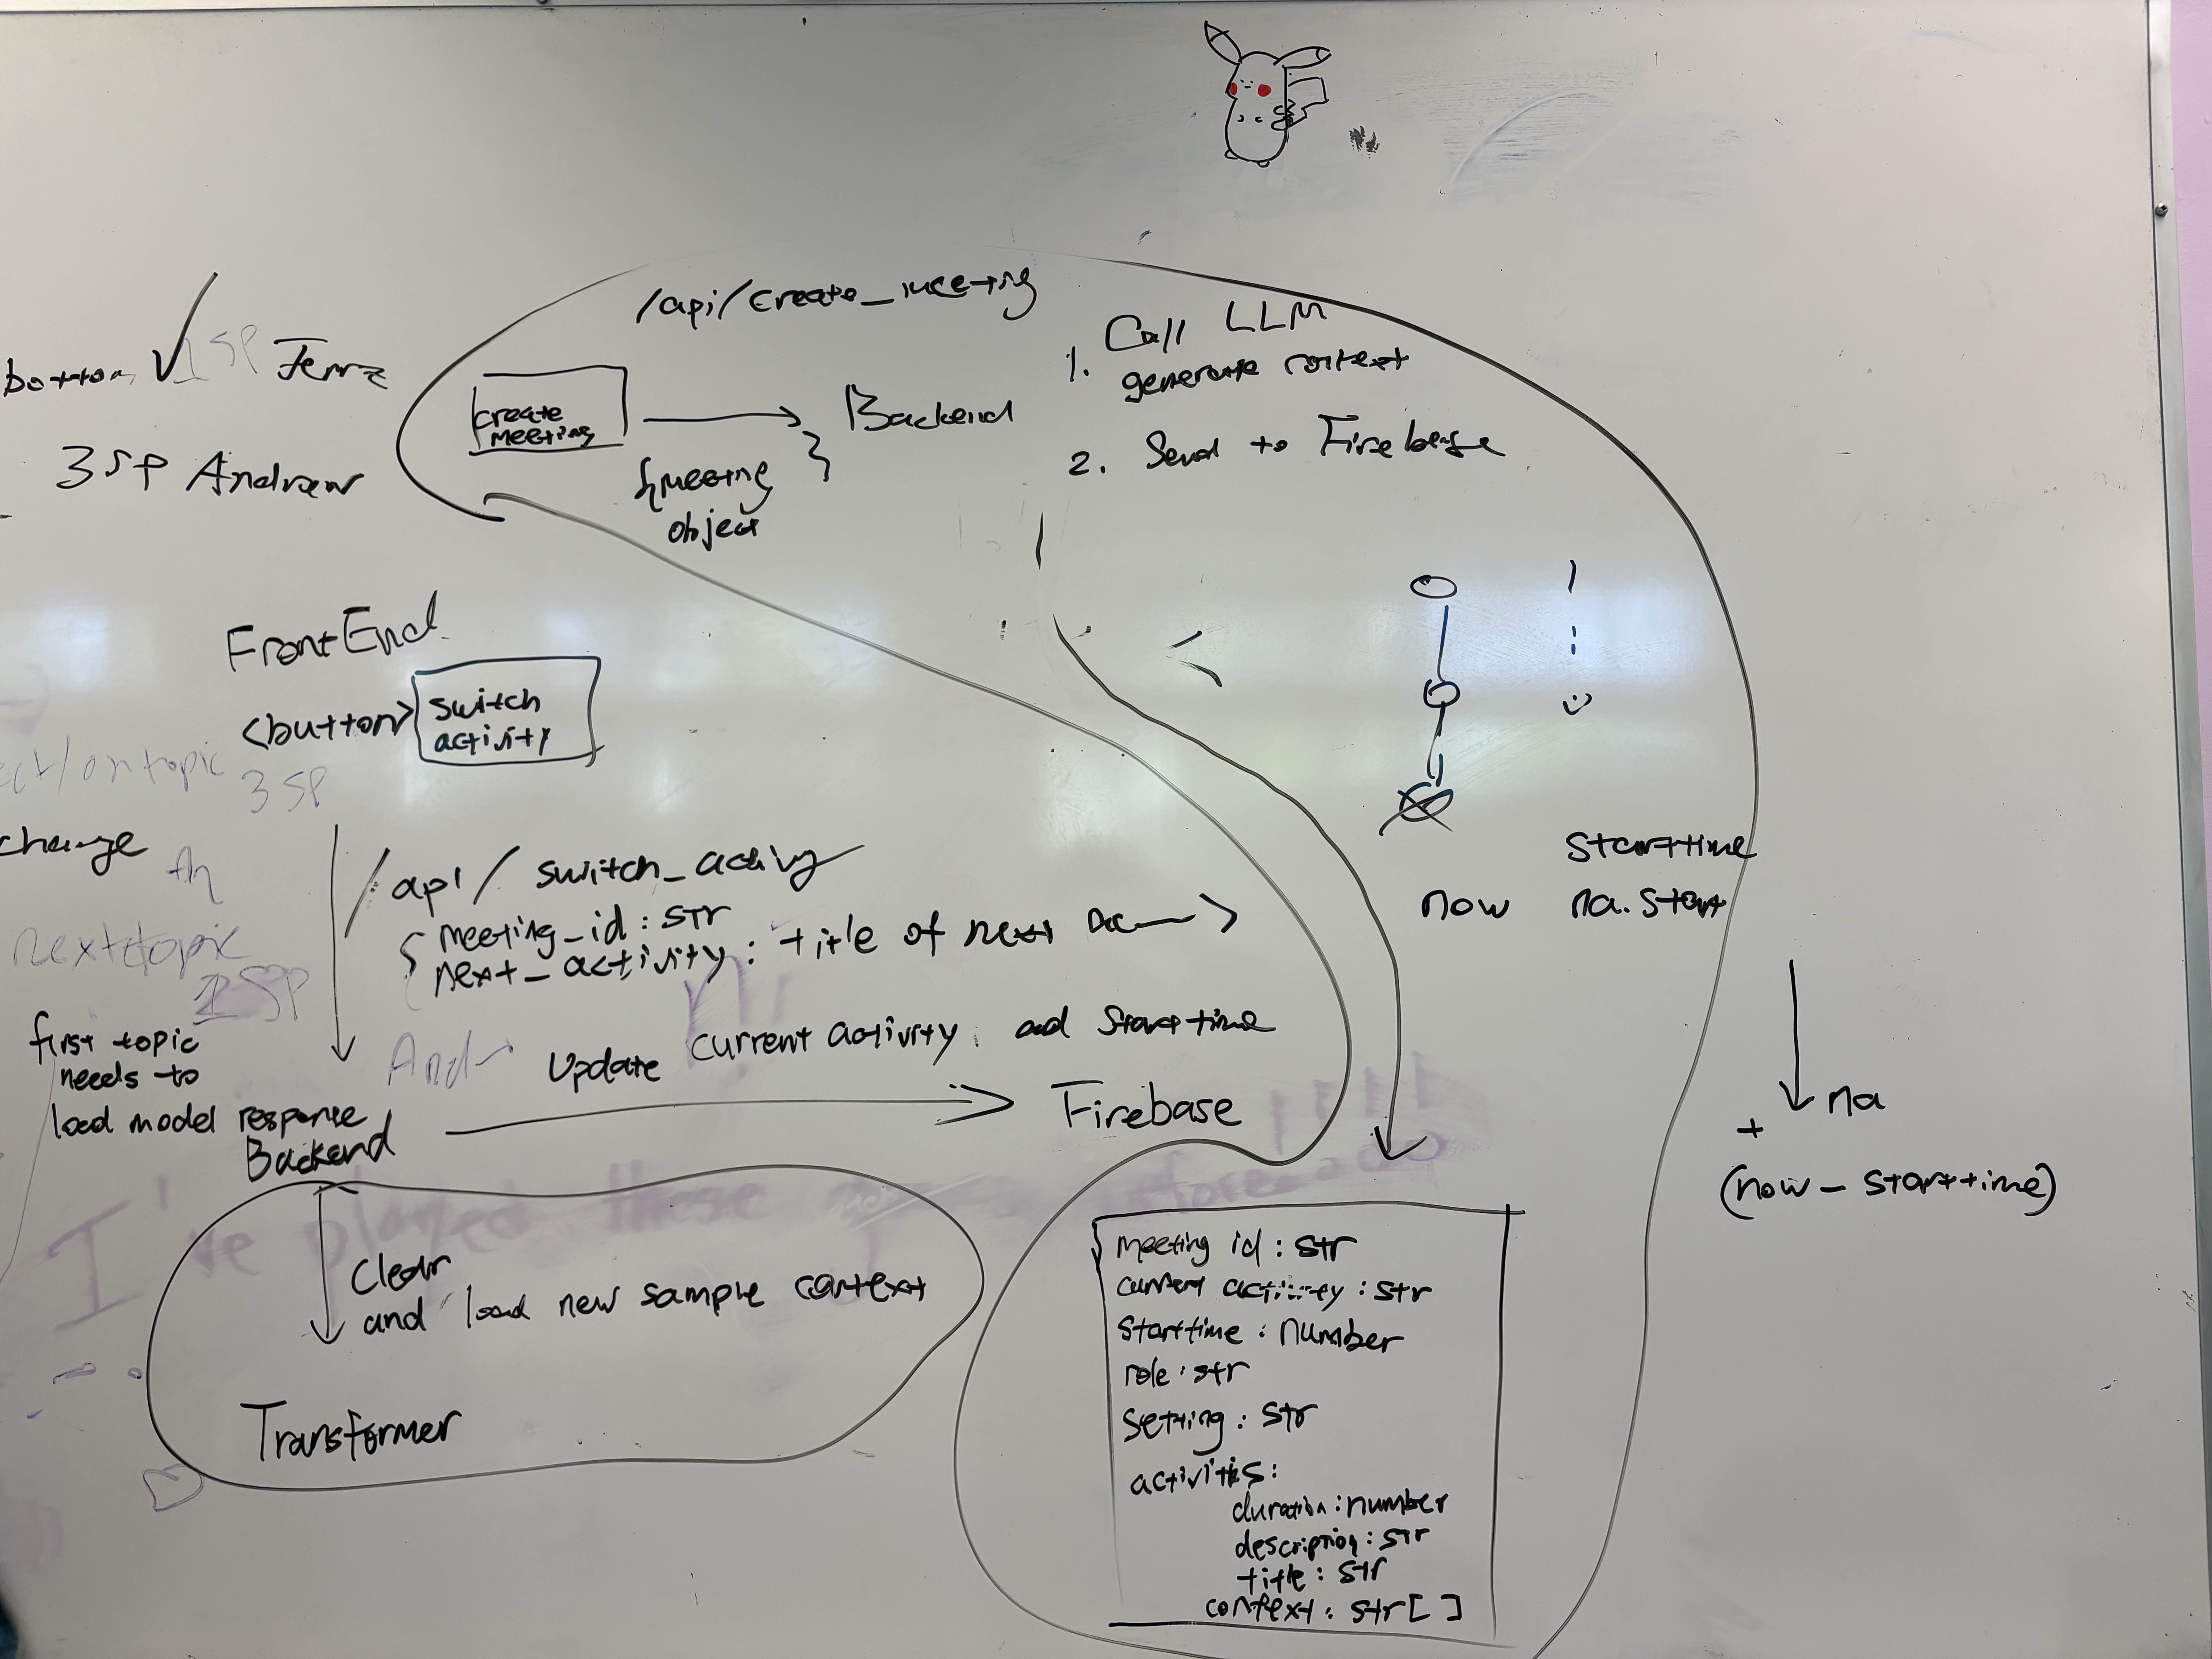 /api/create_meeting
1. Call LLM
generate context
2. Send to Firebase
create
meeting
Backend
{meeting
object
}
bottom
1SP
3SP Andrew
FrontEnd
<button>
switch
activity
ect/on topic
3 SP
change
next topic
1SP
/api/switch_activy
{ meeting_id : str
next_activity : title of next
Update current activity. and Start time
first topic
needs to
load model response
Backend
Firebase
Clear
and load new sample context
Transformer
I've played these before
starttime
now na.start
na
+
(now - starttime)
meeting id : str
current activity : str
starttime : number
role : str
setting : str
activities:
duration : number
description : str
title : str
context : str[ ]